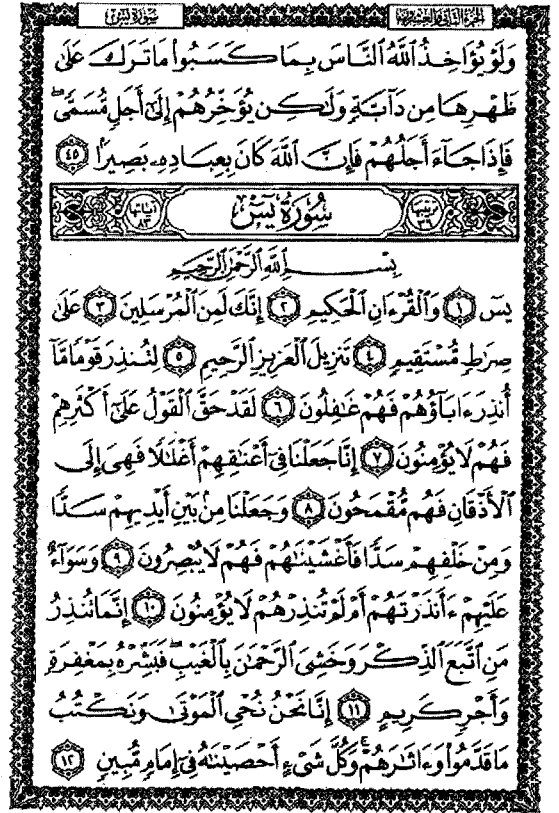 سورة يس
الجزء الثاني والعشرون
وَلَوْ يُؤَاخِذُ ٱللَّهُ ٱلنَّاسَ بِمَا كَسَبُوا۟ مَا تَرَكَ عَلَىٰ
ظَهْرِهَا مِن دَآبَّةٍ وَلَٰكِن يُؤَخِّرُهُمْ إِلَىٰٓ أَجَلٍ مُّسَمًّى ۖ
فَإِذَا جَآءَ أَجَلُهُمْ فَإِنَّ ٱللَّهَ كَانَ بِعِبَادِهِۦ بَصِيرًۢا ٤٥
ترتيبها ٣٦ سُورَةُ يسٓ آياتها ٨٣
بِسْمِ ٱللَّهِ ٱلرَّحْمَٰنِ ٱلرَّحِيمِ
يسٓ ١ وَٱلْقُرْءَانِ ٱلْحَكِيمِ ٢ إِنَّكَ لَمِنَ ٱلْمُرْسَلِينَ ٣ عَلَىٰ
صِرَٰطٍ مُّسْتَقِيمٍ ٤ تَنزِيلَ ٱلْعَزِيزِ ٱلرَّحِيمِ ٥ لِتُنذِرَ قَوْمًا مَّآ
أُنذِرَ ءَابَآؤُهُمْ فَهُمْ غَٰفِلُونَ ٦ لَقَدْ حَقَّ ٱلْقَوْلُ عَلَىٰٓ أَكْثَرِهِمْ
فَهُمْ لَا يُؤْمِنُونَ ٧ إِنَّا جَعَلْنَا فِىٓ أَعْنَٰقِهِمْ أَغْلَٰلًا فَهِىَ إِلَى
ٱلْأَذْقَانِ فَهُم مُّقْمَحُونَ ٨ وَجَعَلْنَا مِنۢ بَيْنِ أَيْدِيهِمْ سَدًّا
وَمِنْ خَلْفِهِمْ سَدًّا فَأَغْشَيْنَٰهُمْ فَهُمْ لَا يُبْصِرُونَ ٩ وَسَوَآءٌ
عَلَيْهِمْ ءَأَنذَرْتَهُمْ أَمْ لَمْ تُنذِرْهُمْ لَا يُؤْمِنُونَ ١٠ إِنَّمَا تُنذِرُ
مَنِ ٱتَّبَعَ ٱلذِّكْرَ وَخَشِىَ ٱلرَّحْمَٰنَ بِٱلْغَيْبِ ۖ فَبَشِّرْهُ بِمَغْفِرَةٍ
وَأَجْرٍ كَرِيمٍ ١١ إِنَّا نَحْنُ نُحْىِ ٱلْمَوْتَىٰ وَنَكْتُبُ
مَا قَدَّمُوا۟ وَءَاثَٰرَهُمْ ۚ وَكُلَّ شَىْءٍ أَحْصَيْنَٰهُ فِىٓ إِمَامٍ مُّبِينٍ ١٢